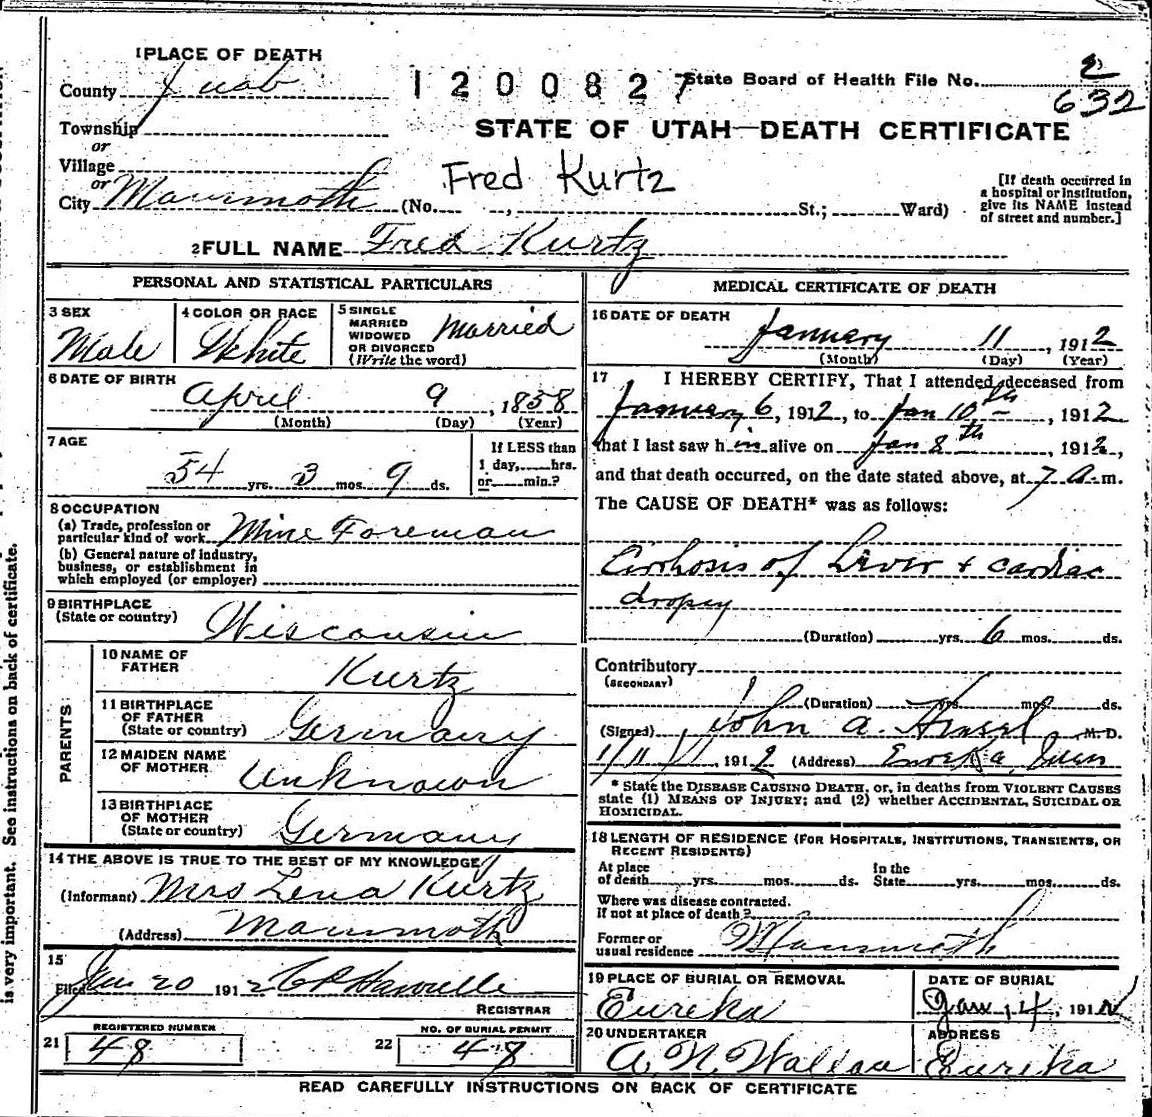 1 PLACE OF DEATH
County Juab
1200827
State Board of Health File No. 2
632
Township
or
Village
or
City Mammoth (No. , St.; Ward)
STATE OF UTAH—DEATH CERTIFICATE
Fred Kurtz
[If death occurred in
a hospital or institution,
give its NAME instead
of street and number.]
2 FULL NAME Fred Kurtz
PERSONAL AND STATISTICAL PARTICULARS
3 SEX
Male
4 COLOR OR RACE
White
5 SINGLE
MARRIED
WIDOWED
OR DIVORCED
(Write the word)
Married
6 DATE OF BIRTH
April 9, 1858
(Month) (Day) (Year)
7 AGE
54 yrs. 3 mos. 9 ds.
If LESS than
1 day, hrs.
or min.?
8 OCCUPATION
(a) Trade, profession or
particular kind of work Mine Foreman
(b) General nature of industry,
business, or establishment in
which employed (or employer)
9 BIRTHPLACE
(State or country) Wisconsin
PARENTS
10 NAME OF
FATHER Kurtz
11 BIRTHPLACE
OF FATHER
(State or country) Germany
12 MAIDEN NAME
OF MOTHER Unknown
13 BIRTHPLACE
OF MOTHER
(State or country) Germany
14 THE ABOVE IS TRUE TO THE BEST OF MY KNOWLEDGE
(Informant) Mrs Lena Kurtz
(Address) Mammoth
15
Filed Jan 20 1912
REGISTRAR
21 REGISTERED NUMBER
48
22 NO. OF BURIAL PERMIT
48
MEDICAL CERTIFICATE OF DEATH
16 DATE OF DEATH
January 11, 1912
(Month) (Day) (Year)
17 I HEREBY CERTIFY, That I attended deceased from
January 6, 1912, to Jan 10th, 1912
that I last saw him alive on Jan 8th, 1912,
and that death occurred, on the date stated above, at 7 a.m.
The CAUSE OF DEATH* was as follows:
Cirrhosis of Liver + cardiac
dropsy
(Duration) yrs. 6 mos. ds.
Contributory
(SECONDARY)
(Duration) yrs. mos. ds.
(Signed) John A. M. D.
1/11/, 1912 (Address) Eureka
* State the DISEASE CAUSING DEATH, or, in deaths from VIOLENT CAUSES
state (1) MEANS OF INJURY; and (2) whether ACCIDENTAL, SUICIDAL OR
HOMICIDAL.
18 LENGTH OF RESIDENCE (FOR HOSPITALS, INSTITUTIONS, TRANSIENTS, OR
RECENT RESIDENTS)
At place
of death yrs. mos. ds.
In the
State yrs. mos. ds.
Where was disease contracted.
If not at place of death?
Former or
usual residence Mammoth
19 PLACE OF BURIAL OR REMOVAL
Eureka
DATE OF BURIAL
Jan, 14, 1912
20 UNDERTAKER
A. N. Wallace
ADDRESS
Eureka
READ CAREFULLY INSTRUCTIONS ON BACK OF CERTIFICATE
is very important. See instructions on back of certificate.